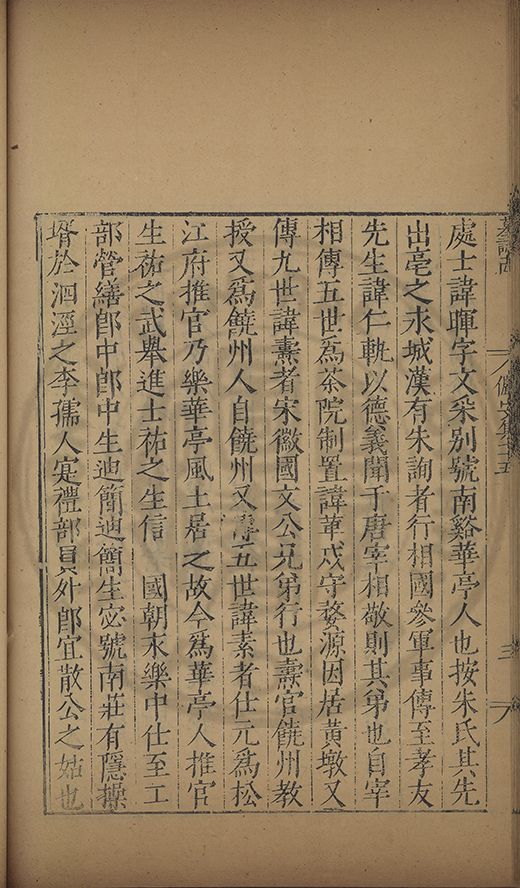 處士諱暉字文采别號南谿華亭人也按朱氏其先
出亳之永城漢有朱詢者行相國參軍事傳至孝友
先生諱仁軌以德義聞于唐宰相敬則其弟也自宰
相傳五世爲茶院制置諱革戍守婺源因居黃墩又
傳九世諱燾者宋徽國文公兄弟行也壽官饒州教
授又爲饒州人自饒州又傳五世諱素者仕元爲松
江府推官乃樂華亭風土居之故今爲華亭人推官
生祐之武舉進士祐之生信 國朝永樂中仕至工
部營繕郎中郎中生迪簡迪簡生宓號南莊有隱操
壻於泗涇之李孺人寔禮部員外郎宜散公之姑也
三